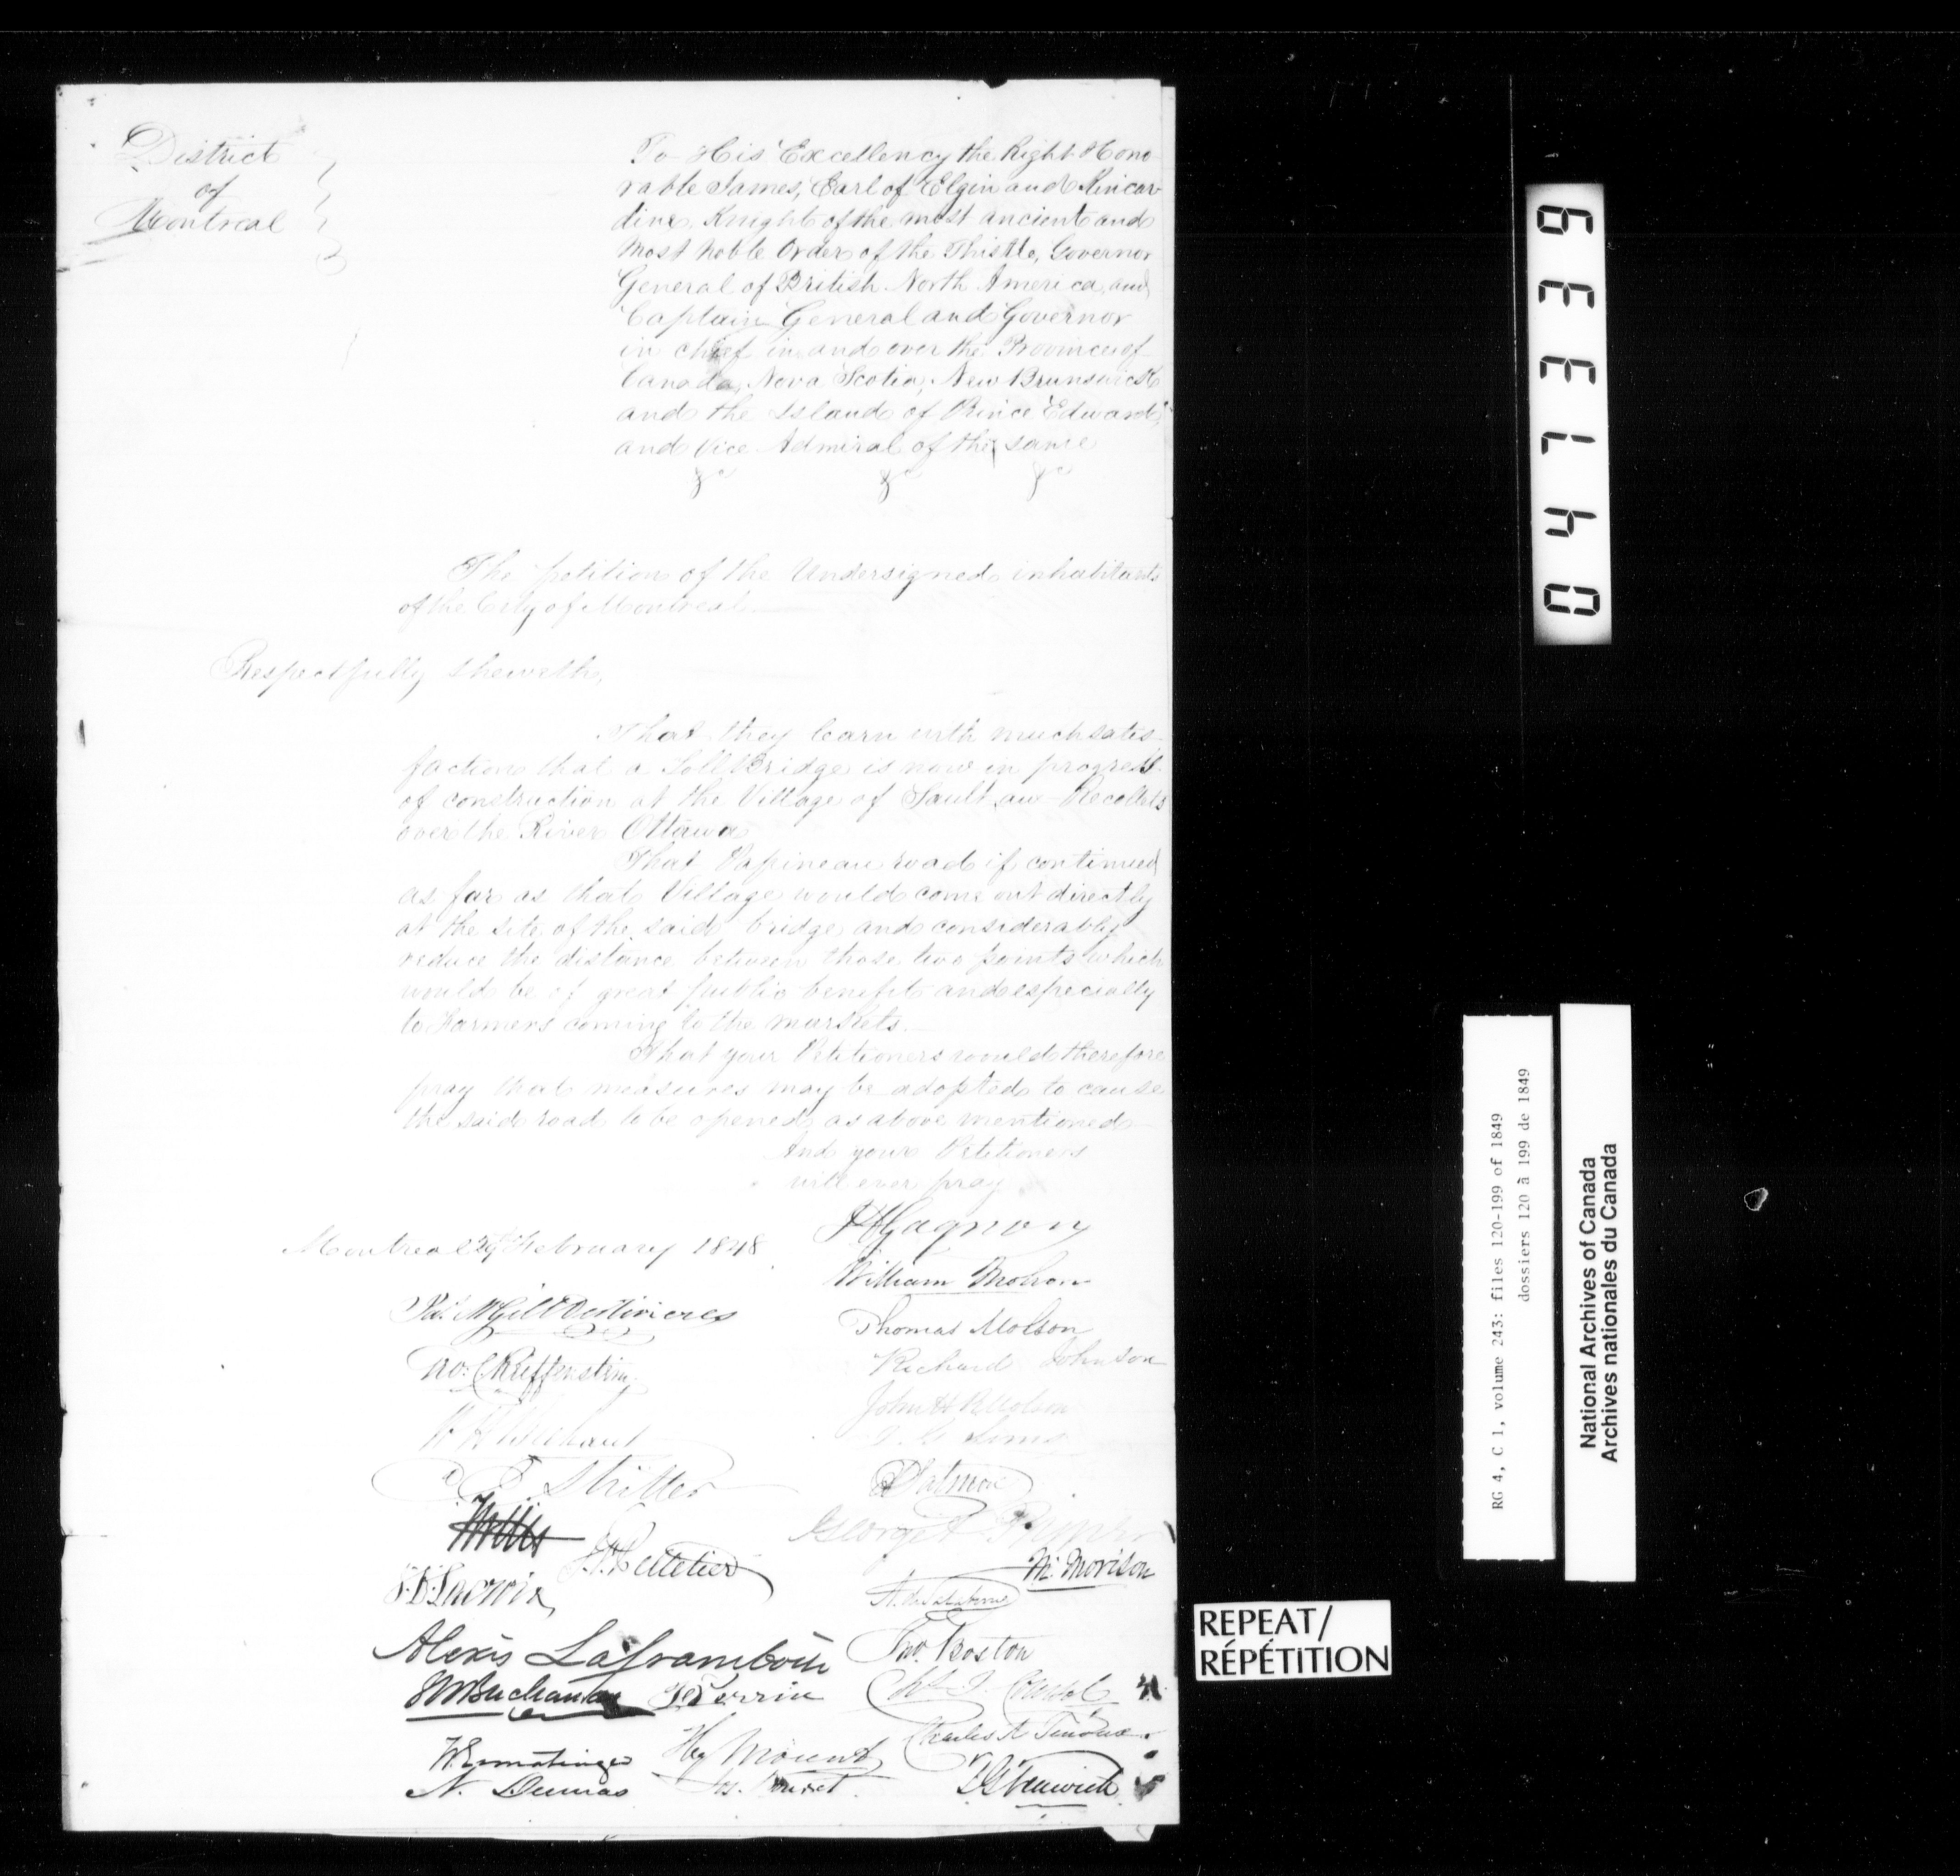 District
of
Montreal
To His Excellency the Right Hono
rable James, Earl of Elgin and Kincar
dine, Knight of the most ancient and
most noble Order of the Thistle, Governor
General of British North America, and
Captain General and Governor
in chief in and over the Provinces of
Canada, Nova Scotia, New Brunswick
and the Island of Prince Edward,
and Vice Admiral of the same
&c &c &c
The petition of the Undersigned inhabitants
of the City of Montreal
Respectfully sheweth,
That they learn with much satis
faction that a Toll Bridge is now in progress
of construction at the Village of Sault au Recollets
over the River Ottawa
That Papineau road if continued
as far as that Village would come out directly
at the site of the said bridge and considerably
reduce the distance between those two points which
would be of great public benefit and especially
to Farmers coming to the markets.
That your Petitioners would therefore
pray that measures may be adopted to cause
the said road to be opened as above mentioned
And your Petitioners
will ever pray
Montreal February 1848
Gagnon
William Molson
Thomas Molson
Richard Johnson
John H R Molson
Sims
George
M. Morison
Boston
Charles
Pelletier
Alexis Laframboise
Buchanan
Hy Mount
N. Dumas
W Ermatinger
REPEAT/
RÉPÉTITION
0471339
RG 4, C 1, volume 243: files 120-199 of 1849
dossiers 120 à 199 de 1849
National Archives of Canada
Archives nationales du Canada